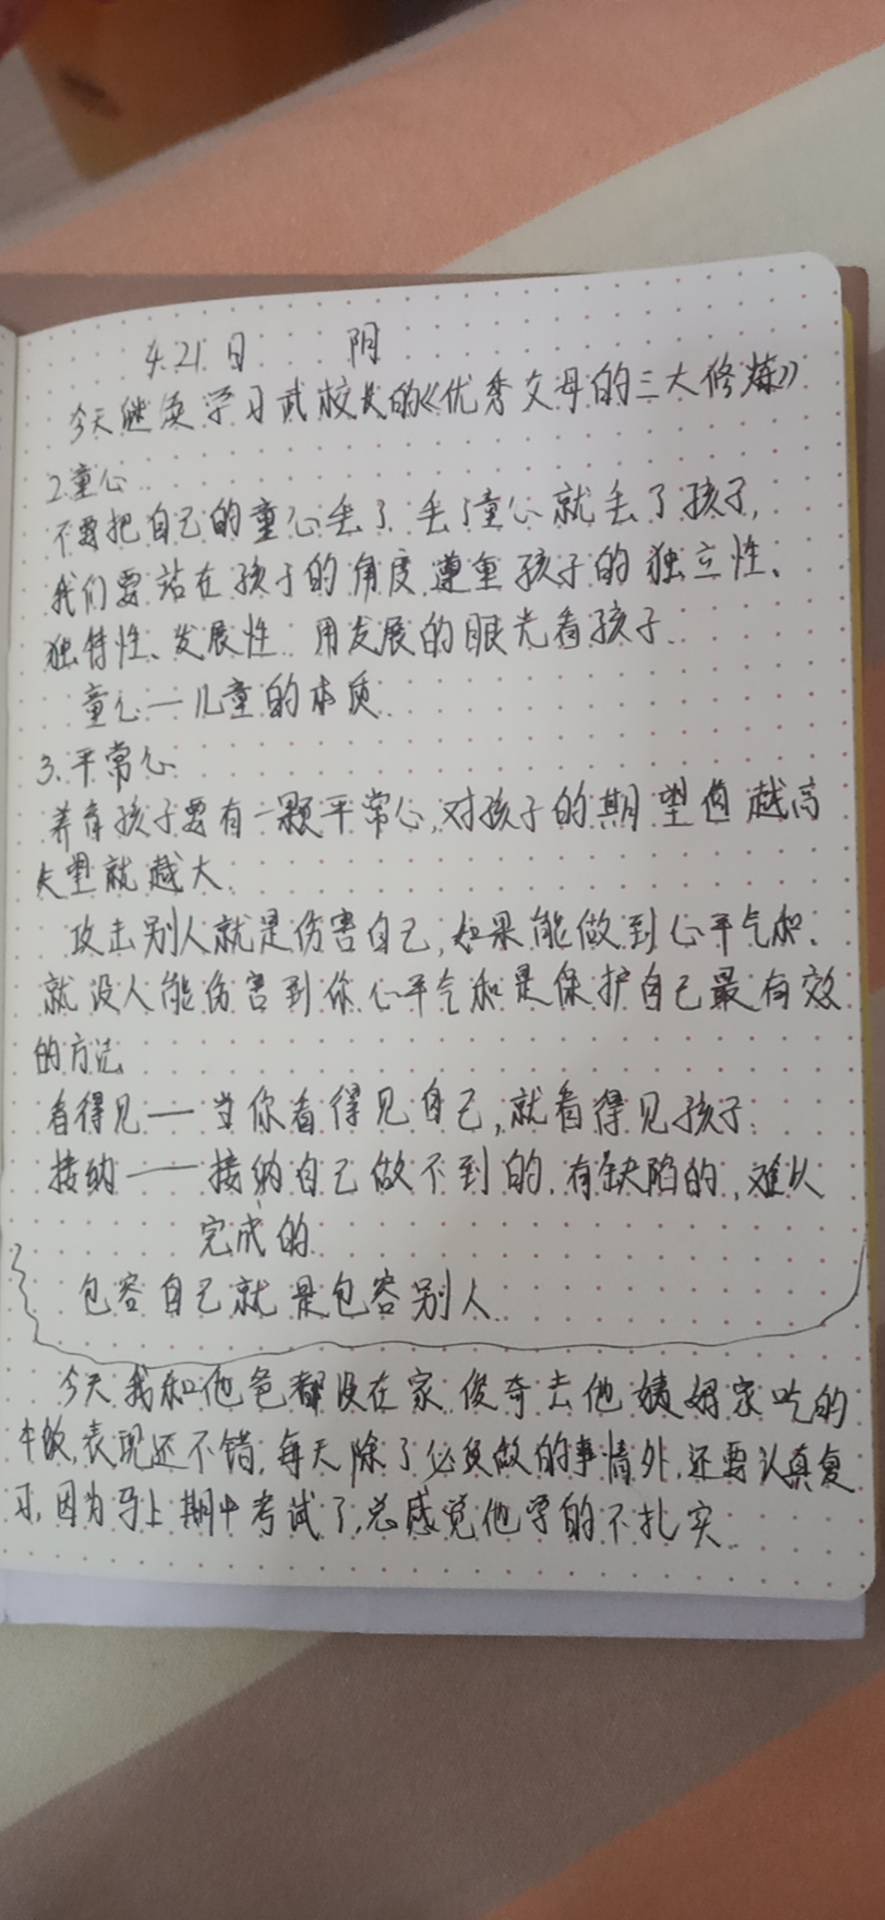 4.21.日 阴
今天继续学习武校长的《优秀父母的三大修炼》
2.童心
不要把自己的童心丢了、丢了童心就丢了孩子,
我们要站在孩子的角度遵重孩子的独立性、
独特性、发展性 用发展的眼光看孩子.
童心一儿童的本质.
3.平常心
养育孩子要有一颗平常心,对孩子的期望值越高
失望就越大.
攻击别人就是伤害自己,如果能做到心平气和、
就没人能伤害到你.心平气和是保护自己最有效
的方法
看得见——当你看得见自己,就看得见孩子.
接纳——接纳自己做不到的.有缺陷的,难以
完成的.
包容自己就是包容别人.
今天我和他爸都没在家 俊奇去他姨妈家吃的
午饭,表现还不错,每天除了必须做的事情外,还要认真复
习,因为马上期中考试了,总感觉他学的不扎实.